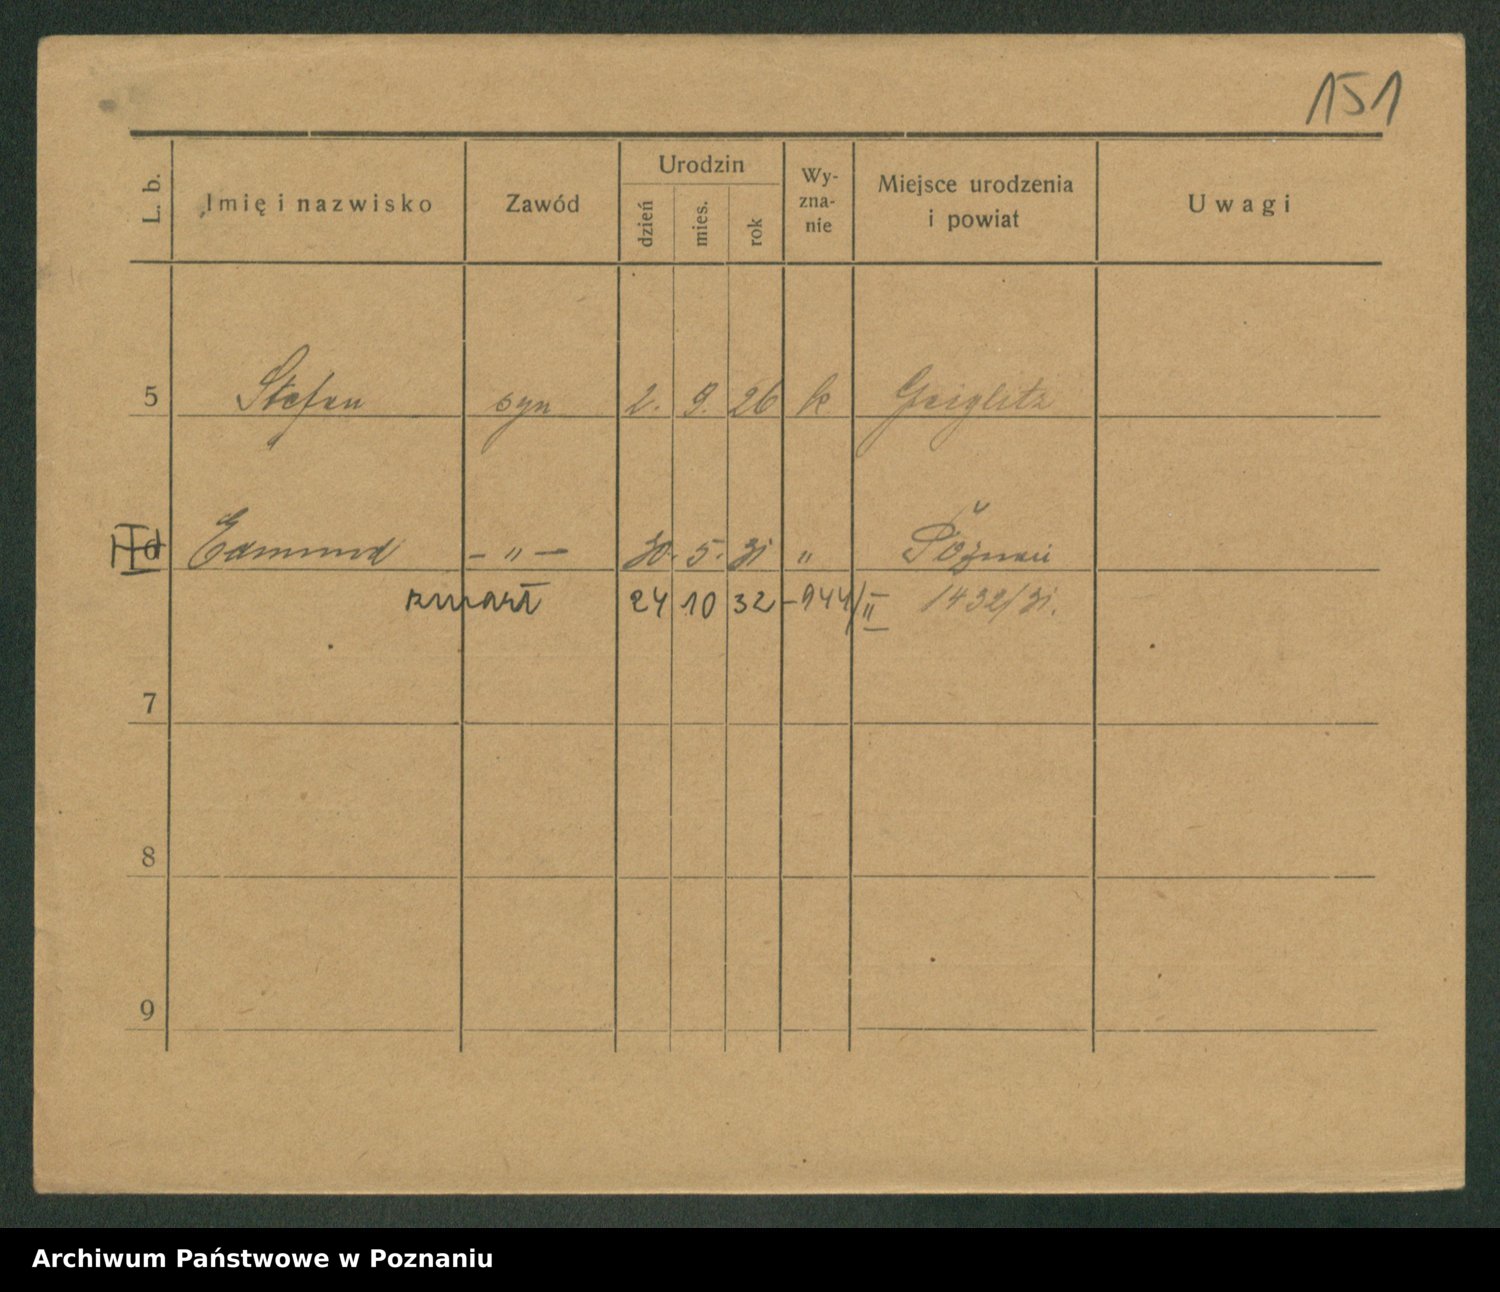 151
L. b.
Imię i nazwisko
Zawód
Urodzin
dzień
mies.
rok
Wy-
zna-
nie
Miejsce urodzenia
i powiat
Uwagi
5 Stefan syn 2. 9. 26 k
6 Edmund – " – 30. 5. 31 " Poznań
zmarł 24 10 32 – 944/II 1432/31.
7
8
9
Archiwum Państwowe w Poznaniu